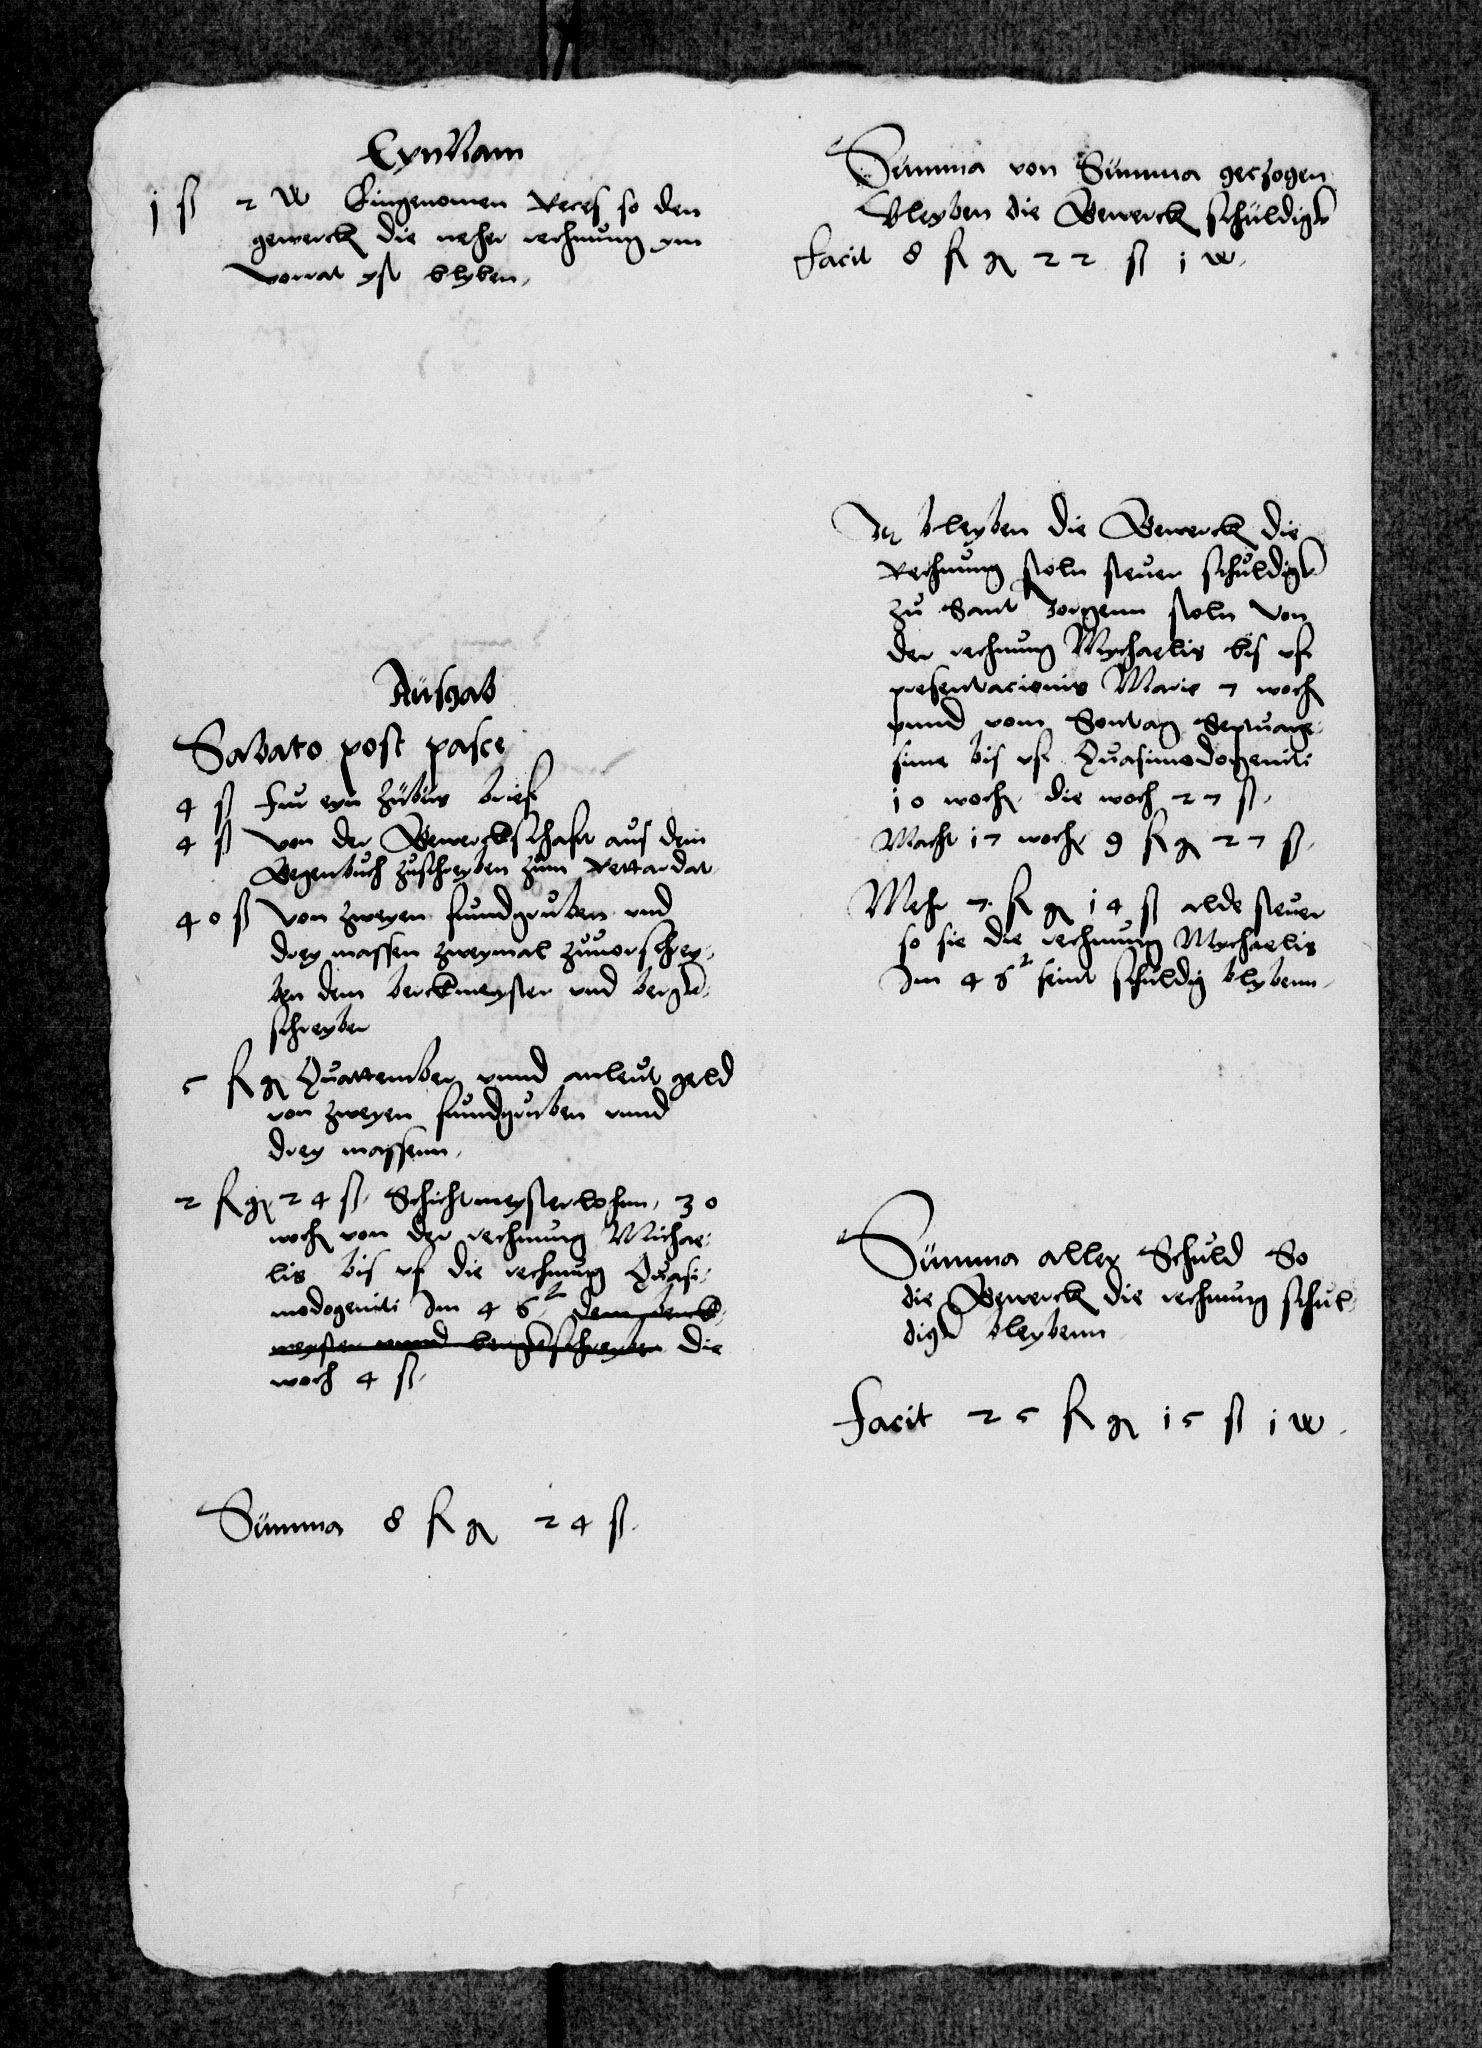 EynNam
j ß 2 w Eingenomen Reces so den
gewerck die neher rechnung ym
vorrat yst blyben,
Ausgab
Sabato post pasce
4 ß fur eyn zubus brief
4 ß von der Gewerckschaft aus dem
Gegenbuch zuschreyben zum Rettardat
40 ß von zweyen fundgruben vnd
drey massen zweymal zuuorschrey,
ben dem berckmeyster vnd bergk,
schreyber
5 fl g Quattember vnnd anleut geld
von zweyen fundgruben vnnd
drey massenn,
2 fl g 24 ß, Schichtmeyster lohnn, 30
woch von der rechnung Michae,
lis bis vf die rechnung Quasi,
modogeniti Im 46 2 dem berck,
meyster vnnd bergkschreyber die
woch 4 ß,
Summa 8 fl g 24 ß,
Summa von Summa geczogen
Bleyben die Gewerck schuldigk
facit 8 fl g 22 ß j w,
It bleyben die Gewerck die
Rechnung stoln steuer schuldigk
zu Sant Jorgenn stoln von
der rechnung Mychaelis bis vf
presentacionis Marie 7 woch
vnnd vom Sontag Septuage,
sime bis vf Quasimodogeniti
10 woch, die woch 27 ß,
Macht 17 woch 9 fl g 27 ß,
Mehr 7 fl g 14 ß alde steuer
so sie die rechnung Mychaelis
Im 46 2 seint schuldig blybenn,
Summa aller Schuld So
die Gewerck die rechnung schul,
digk bleybenn
Facit 25 fl g 15 ß j w,